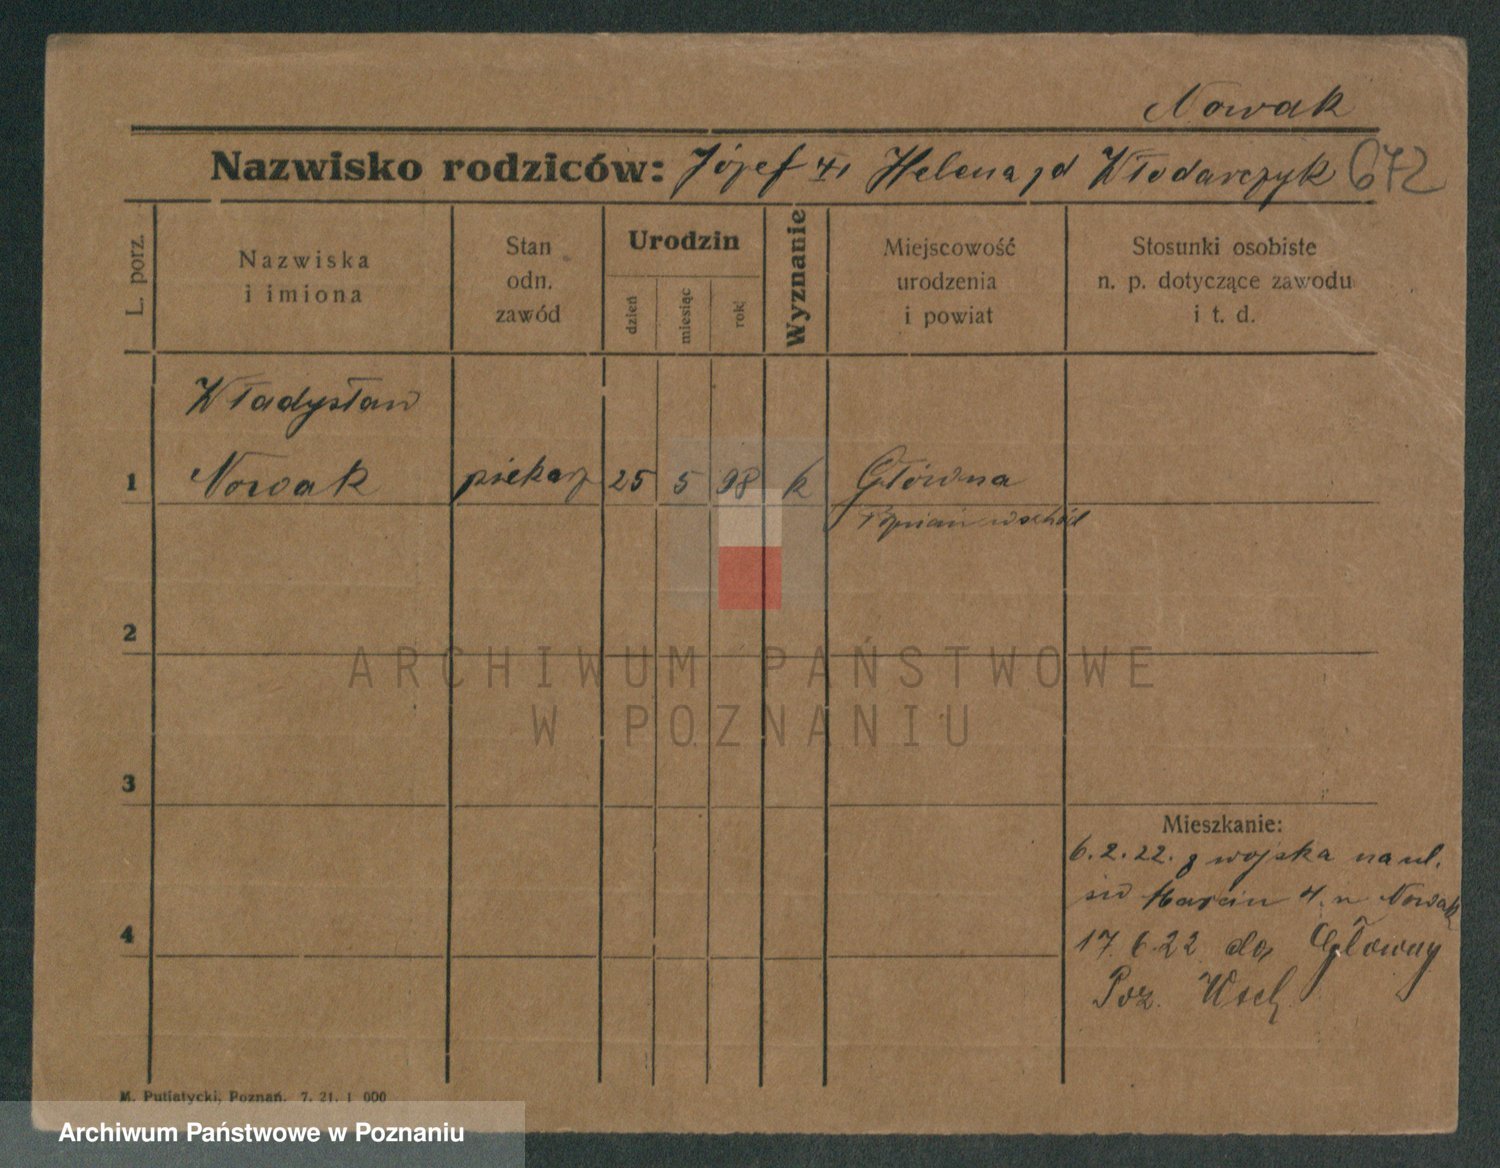 Nowak
Nazwisko rodziców: Józef i Helena zd Włodarczyk 672
L. porz.
Nazwiska
i imiona
Stan
odn.
zawód
Urodzin
dzień
miesiąc
rok
Wyznanie
Miejscowość
urodzenia
i powiat
Stosunki osobiste
n. p. dotyczące zawodu
i t. d.
Władysław
1 Nowak piekarz 25 5 98 k Główna
Poznań wschód
2
ARCHIWUM PAŃSTWOWE
W POZNANIU
3
Mieszkanie:
6.2.22. z wojska na ul.
św Marcin 4. n Nowak
4
17.6.22 do Główny
Poz. Wsch
M. Putiatycki, Poznań. 7. 21. 1 000
Archiwum Państwowe w Poznaniu